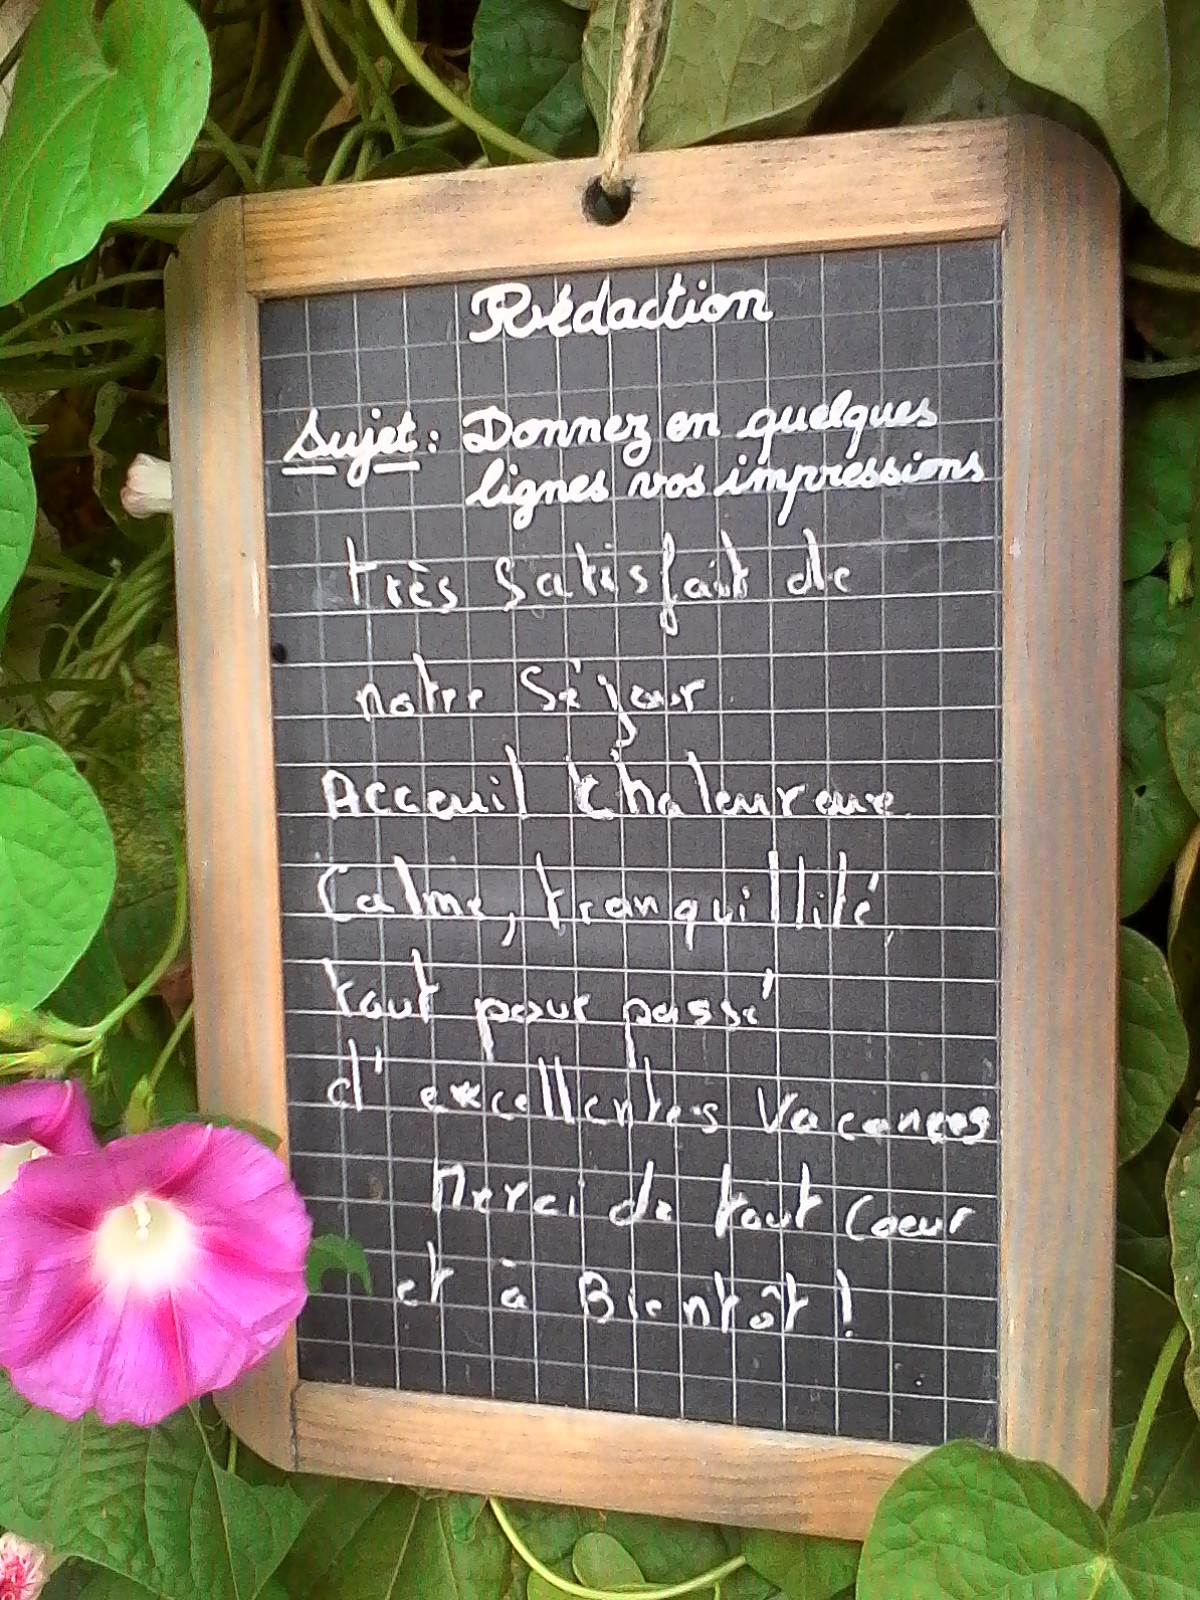 Rédaction
Sujet : Donnez en quelques
lignes vos impressions
très satisfait de
notre Séjour.
Acceuil chaleureux.
Calme, tranquillité,
tout pour passé
d'excellentes Vacances
Merci de tout Coeur
et à Bientôt !